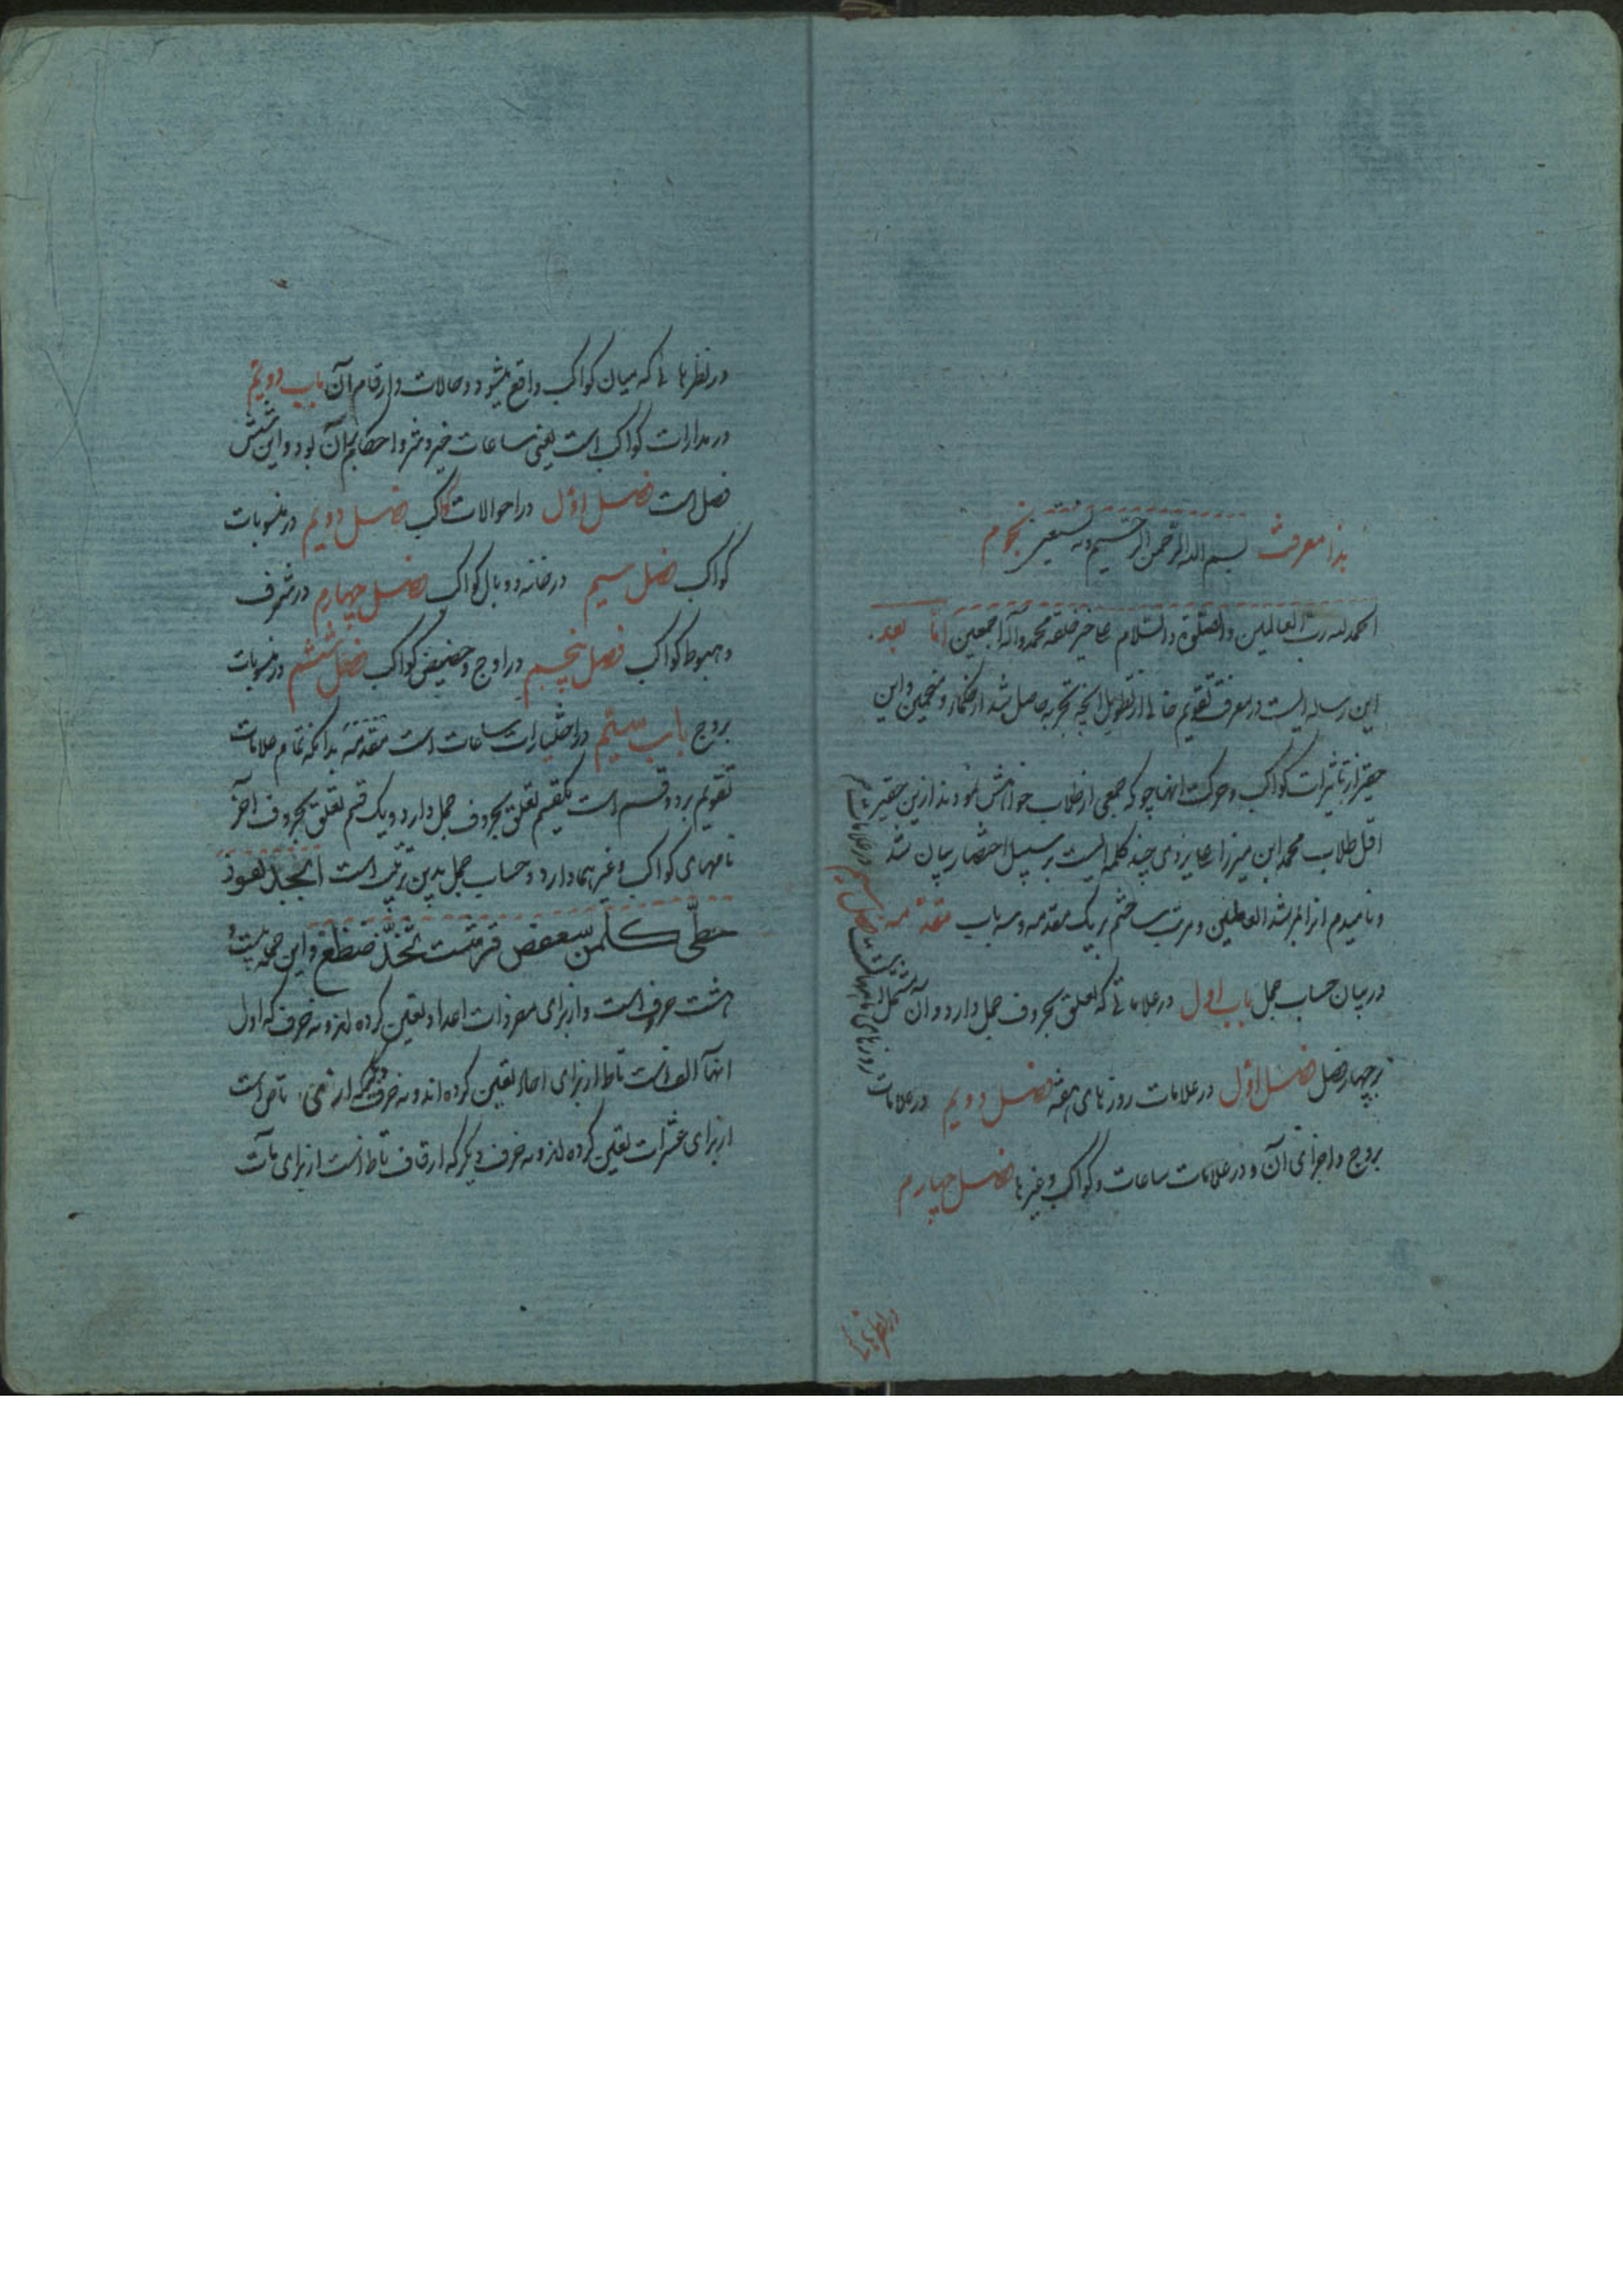 هذا معرفت بسم الله الرحمن الرحیم وبه نستعین نجوم
الحمد لله رب العالمین والصلوة والسلام علی خیر خلقه محمد وآله اجمعین اما بعد
این رساله ایست در معرفت تقویم خالی از تطویل آنچه تجربه حاصل شد از حکماء و منجمین و این
حقیر از تاثیرات کواکب و حرکت انها چو که جمعی از طلاب خواهش نمودند ازین حقیر
اقل طلاب محمد ابن میرزا علی یزدی چند کلمه ایست بر سبیل اختصار بیان شد
و نامیدم انرا و مرتب ساختم بر یک مقدمه و سه باب مقدمه
در بیان حساب جمل باب اول در علاماتی که تعلق بحروف جمل دارد و آن مشتمل است
بر چهار فصل فصل اول در علامات روزهای هفته فصل دویم در علامات
روزهای ماههاست فصل سیم در علامات
بروج و اجزای آن و در علامات ساعات و کواکب و غیرها فصل چهارم
در نظرهائی
در نظرهائی که میان کواکب واقع میشود و حالات و ارقام آن باب دویم
در مدارات کواکب است یعنی ساعات خیر و شر و احکام آن بود و این شش
فصل است فصل اول در احوالات کواکب فصل دویم در منسوبات
کواکب فصل سیم در خانه و وبال کواکب فصل چهارم در شرف
و هبوط کواکب فصل پنجم در اوج و حضیض کواکب فصل ششم در منسوبات
بروج باب سیم در اختیارات ساعات است مقدمه بدانکه تمام علامات
تقویم بر دو قسم است یکقسم تعلق بحروف جمل دارد و یک قسم تعلق بحروف آخر
نامهای کواکب و غیرهما دارد و حساب جمل بدین ترتیب است ابجد هوز
حطی کلمن سعفص قرشت ثخذ ضظغ و این جمله بیست و
هشت حرف است و از برای مفردات اعداد تعیین کرده اند و نه حرف که اول
انها الف است تا ط از برای احاد تعیین کرده اند و نه حرف دیگر که از ی تا ص است
از برای عشرات تعیین کرده اند و نه حرف دیگر که از ق تا ظ است از برای مآت